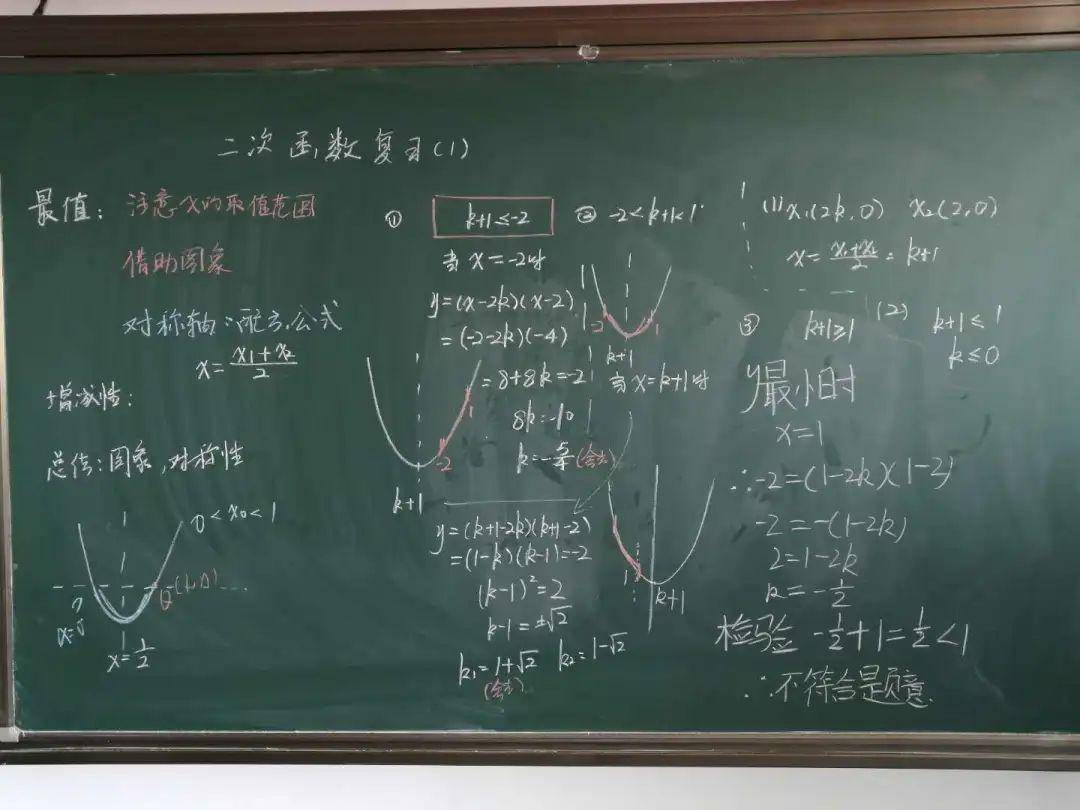 二次函数复习(1)
最值: 注意x的取值范围
借助图象
对称轴:配方,公式
x=\frac{x₁+x₂}{2}
增减性:
总结:图象,对称性
0<x₀<1
x=\frac{1}{2}
① k+1≤-2
当x=-2时
y=(x-2k)(x-2)
=(-2-2k)(-4)
=8+8k=-2
8k=-10
k=-\frac{5}{4}(舍去)
-2
1
k+1
y=(k+1-2k)(k+1-2)
=(1-k)(k-1)=-2
(k-1)²=2
k-1=±√2
k₁=1+√2 k₂=1-√2
(舍去)
② -2<k+1<1
-2
1
k+1
当x=k+1时
-2
1
k+1
(1) x₁(2k,0) x₂(2,0)
x=\frac{x₁+x₂}{2}=k+1
(2) k+1≤1
k≤0
③ k+1≥1
y最小时
x=1
∴-2=(1-2k)(1-2)
-2=-(1-2k)
2=1-2k
k=-\frac{1}{2}
检验 -\frac{1}{2}+1=\frac{1}{2}<1
∴不符合题意